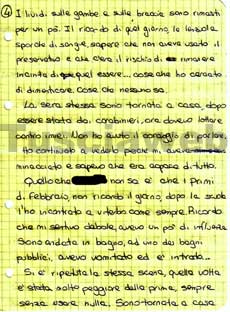 4
I lividi sulle gambe e sulle braccia sono rimasti
per un po'. Il ricordo di quel giorno, le lenzuola
sporche di sangue, sapere che non aveva usato il
preservativo e che c'era il rischio di rimanere
incinta di quel essere... cose che ho cercato
di dimenticare. Cose che nessuno sa.
La sera stessa sono tornata a casa, dopo
essere stata dai carabinieri, ora dovevo lottare
contro i miei. Non ho avuto il coraggio di parlare.
Ho continuato a vederlo perché mi aveva
minacciato e sapevo che era capace di tutto.
Quello che non sa è che i primi
di febbraio, non ricordo il giorno, dopo la scuola
l'ho incontrato a viterbo come sempre. Ricordo
che mi sentivo debole, avevo un po' di influenza
Sono andata in bagno, ad uno dei bagni
pubblici, avevo vomitato ed è entrato...
Si è ripetuta la stessa scena, quella volta
è stata molto peggiore della prima, sempre
senza usare nulla. Sono tornata a casa